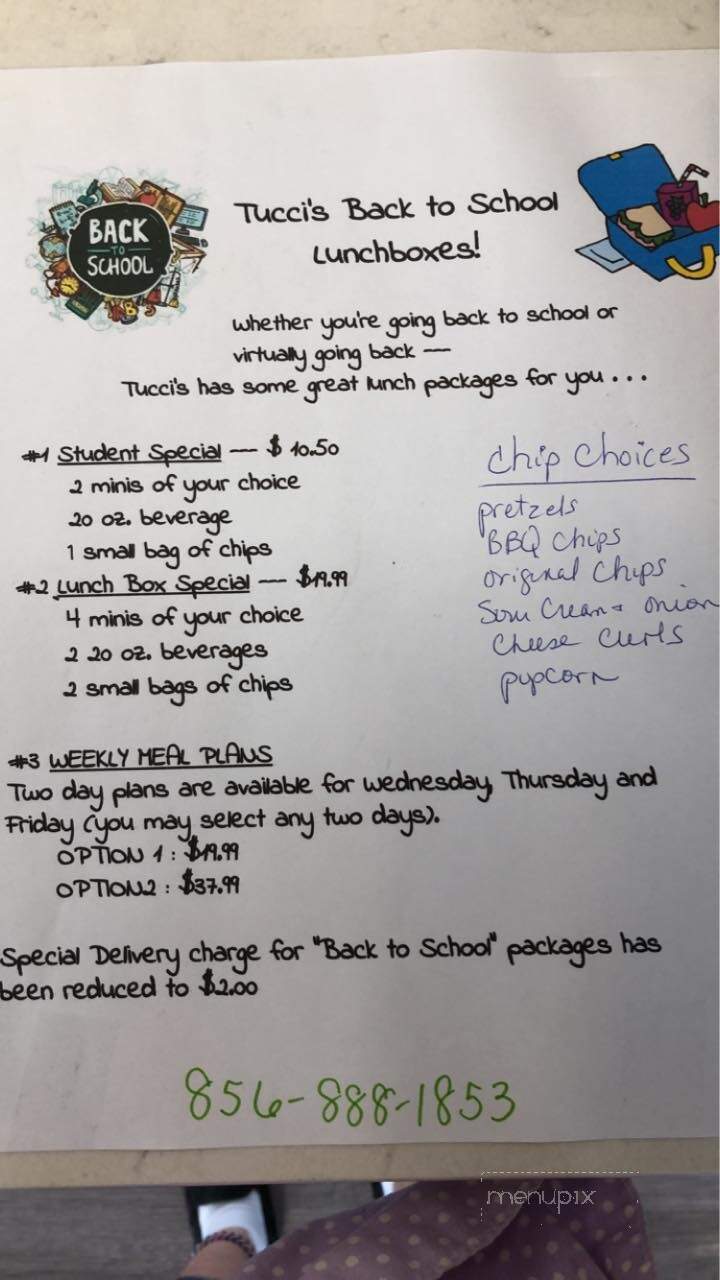 BACK
TO
SCHOOL
Tucci's Back to School
Lunchboxes!
Whether you're going back to school or
virtually going back —
Tucci's has some great lunch packages for you . . .
#1 Student Special — $ 10.50
2 minis of your choice
20 oz. beverage
1 small bag of chips
#2 Lunch Box Special — $19.99
4 minis of your choice
2 20 oz. beverages
2 small bags of chips
Chip Choices
pretzels
BBQ Chips
original Chips
Sour Cream + onion
Cheese Curls
pupcorn
#3 WEEKLY MEAL PLANS
Two day plans are available for Wednesday, Thursday and
Friday (you may select any two days).
OPTION 1 : $19.99
OPTION2 : $37.99
Special Delivery charge for "Back to School" packages has
been reduced to $2.00
856-888-1853
menupix